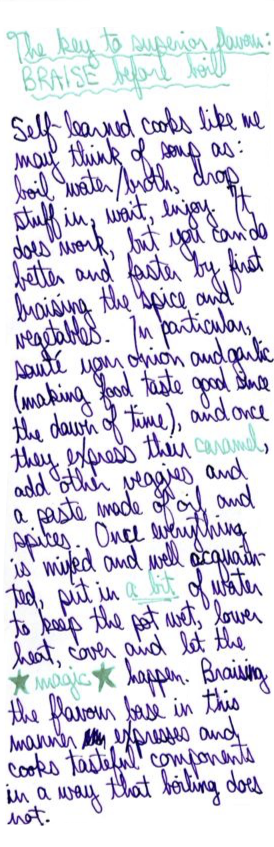 The key to superior flavour:
BRAISE before boil
Self-learned cooks like me
may think of soup as:
boil water/broth, drop
stuff in, wait, enjoy. It
does work, but you can do
better and faster by first
braising the spice and
vegetables. In particular,
sauté your onion and garlic
(making food taste good since
the dawn of time), and once
they express their caramel,
add other veggies and
a paste made of oil and
spices. Once everything
is mixed and well acquain-
ted, put in a bit of water
to keep the pot wet, lower
heat, cover and let the
★magic★ happen. Braising
the flavour base in this
manner expresses and
cooks tasteful components
in a way that boiling does
not.